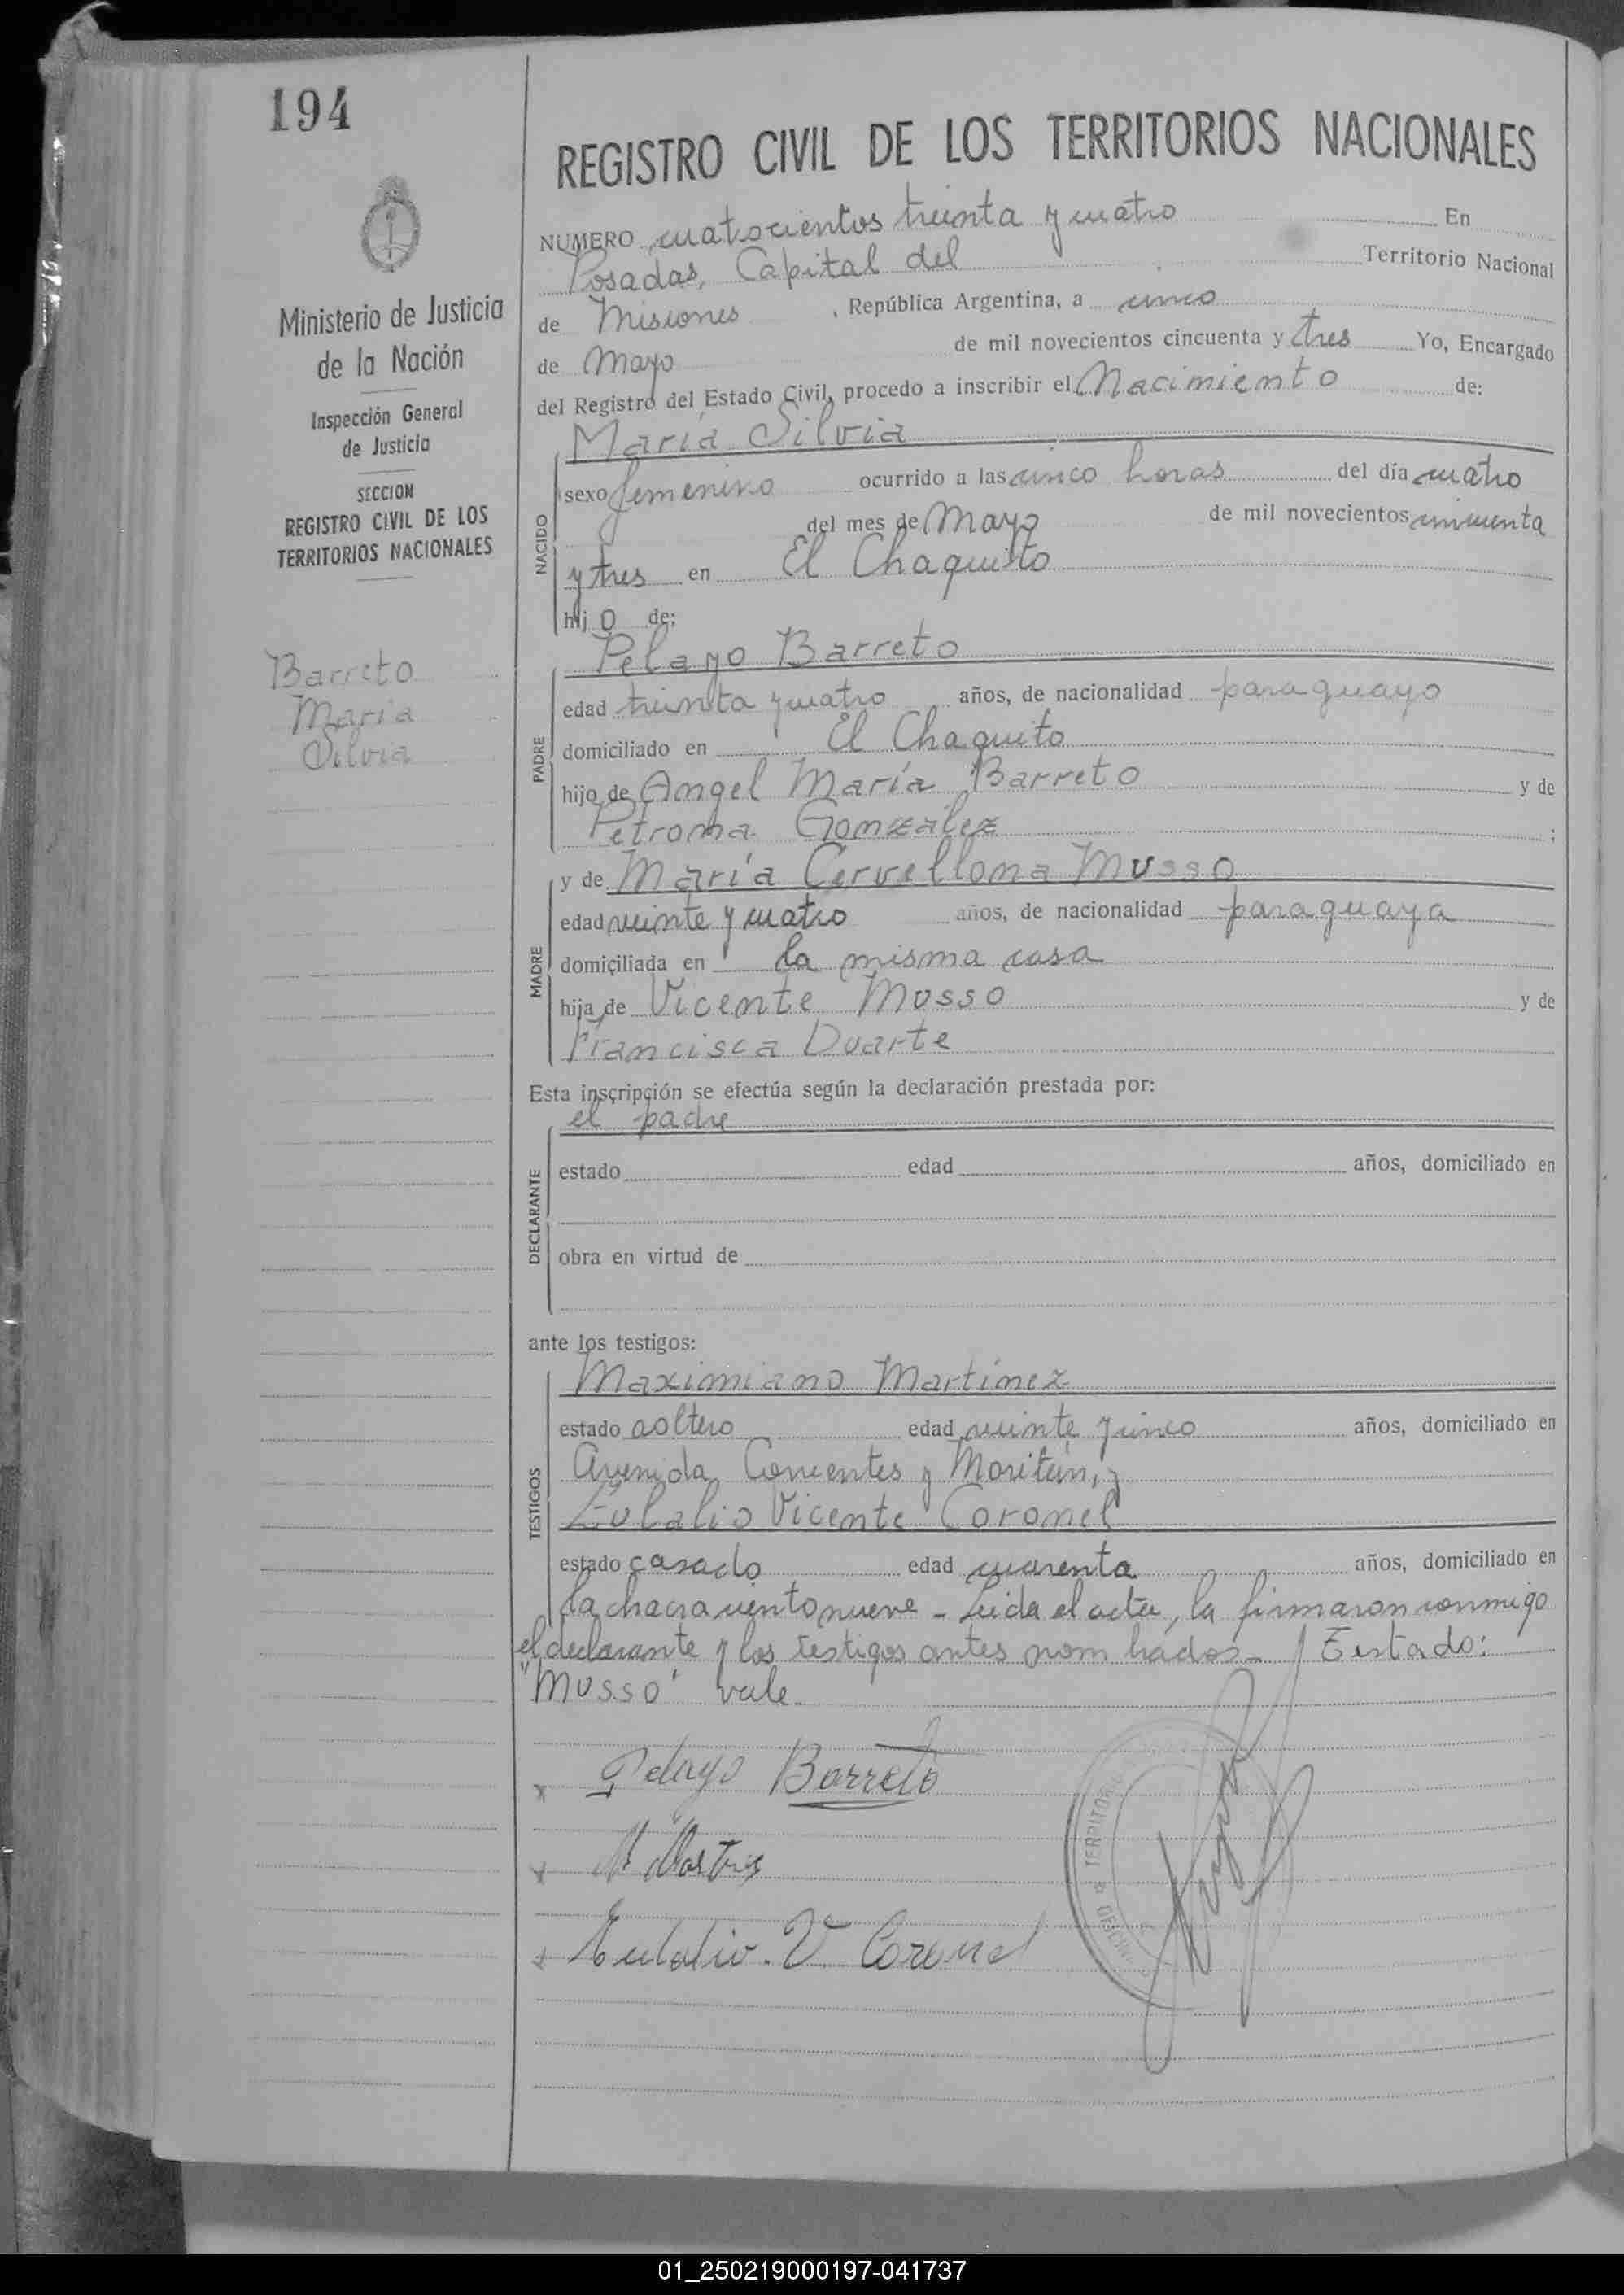 194
Ministerio de Justicia
de la Nación
Inspección General
de Justicia
SECCION
REGISTRO CIVIL DE LOS
TERRITORIOS NACIONALES
Barreto
María
Silvia
REGISTRO CIVIL DE LOS TERRITORIOS NACIONALES
NUMERO cuatrocientos treinta y cuatro En
Posadas, Capital del Territorio Nacional
de Misiones, República Argentina, a cinco
de Mayo de mil novecientos cincuenta y tres Yo, Encargado
del Registro del Estado Civil, procedo a inscribir el Nacimiento de:
María Silvia
NACIDO
sexo femenino ocurrido a las cinco horas del día cuatro
del mes de Mayo de mil novecientos cincuenta
y tres en El Chaquito
hijo de:
Pelayo Barreto
PADRE
edad treinta y cuatro años, de nacionalidad paraguayo
domiciliado en El Chaquito
hijo de Angel María Barreto y de
Petrona Gonzalez ;
y de María Cervellona Musso
MADRE
edad veinte y cuatro años, de nacionalidad paraguaya
domiciliada en la misma casa
hija de Vicente Musso y de
Francisca Duarte
Esta inscripción se efectúa según la declaración prestada por:
el padre
DECLARANTE
estado edad años, domiciliado en
obra en virtud de
ante los testigos:
Maximiano Martínez
TESTIGOS
estado soltero edad veinte y cinco años, domiciliado en
Avenida Corrientes y
Eulalio Vicente Coronel
estado casado edad cuarenta años, domiciliado en
la chacra ciento nueve - Leída el acta, la firmaron conmigo
el declarante y los testigos antes nombrados - Testado:
"Musso" vale.
x Pelayo Barreto
x M
x Eulalio. V. Coronel
TERRITORIO
01_250219000197-041737